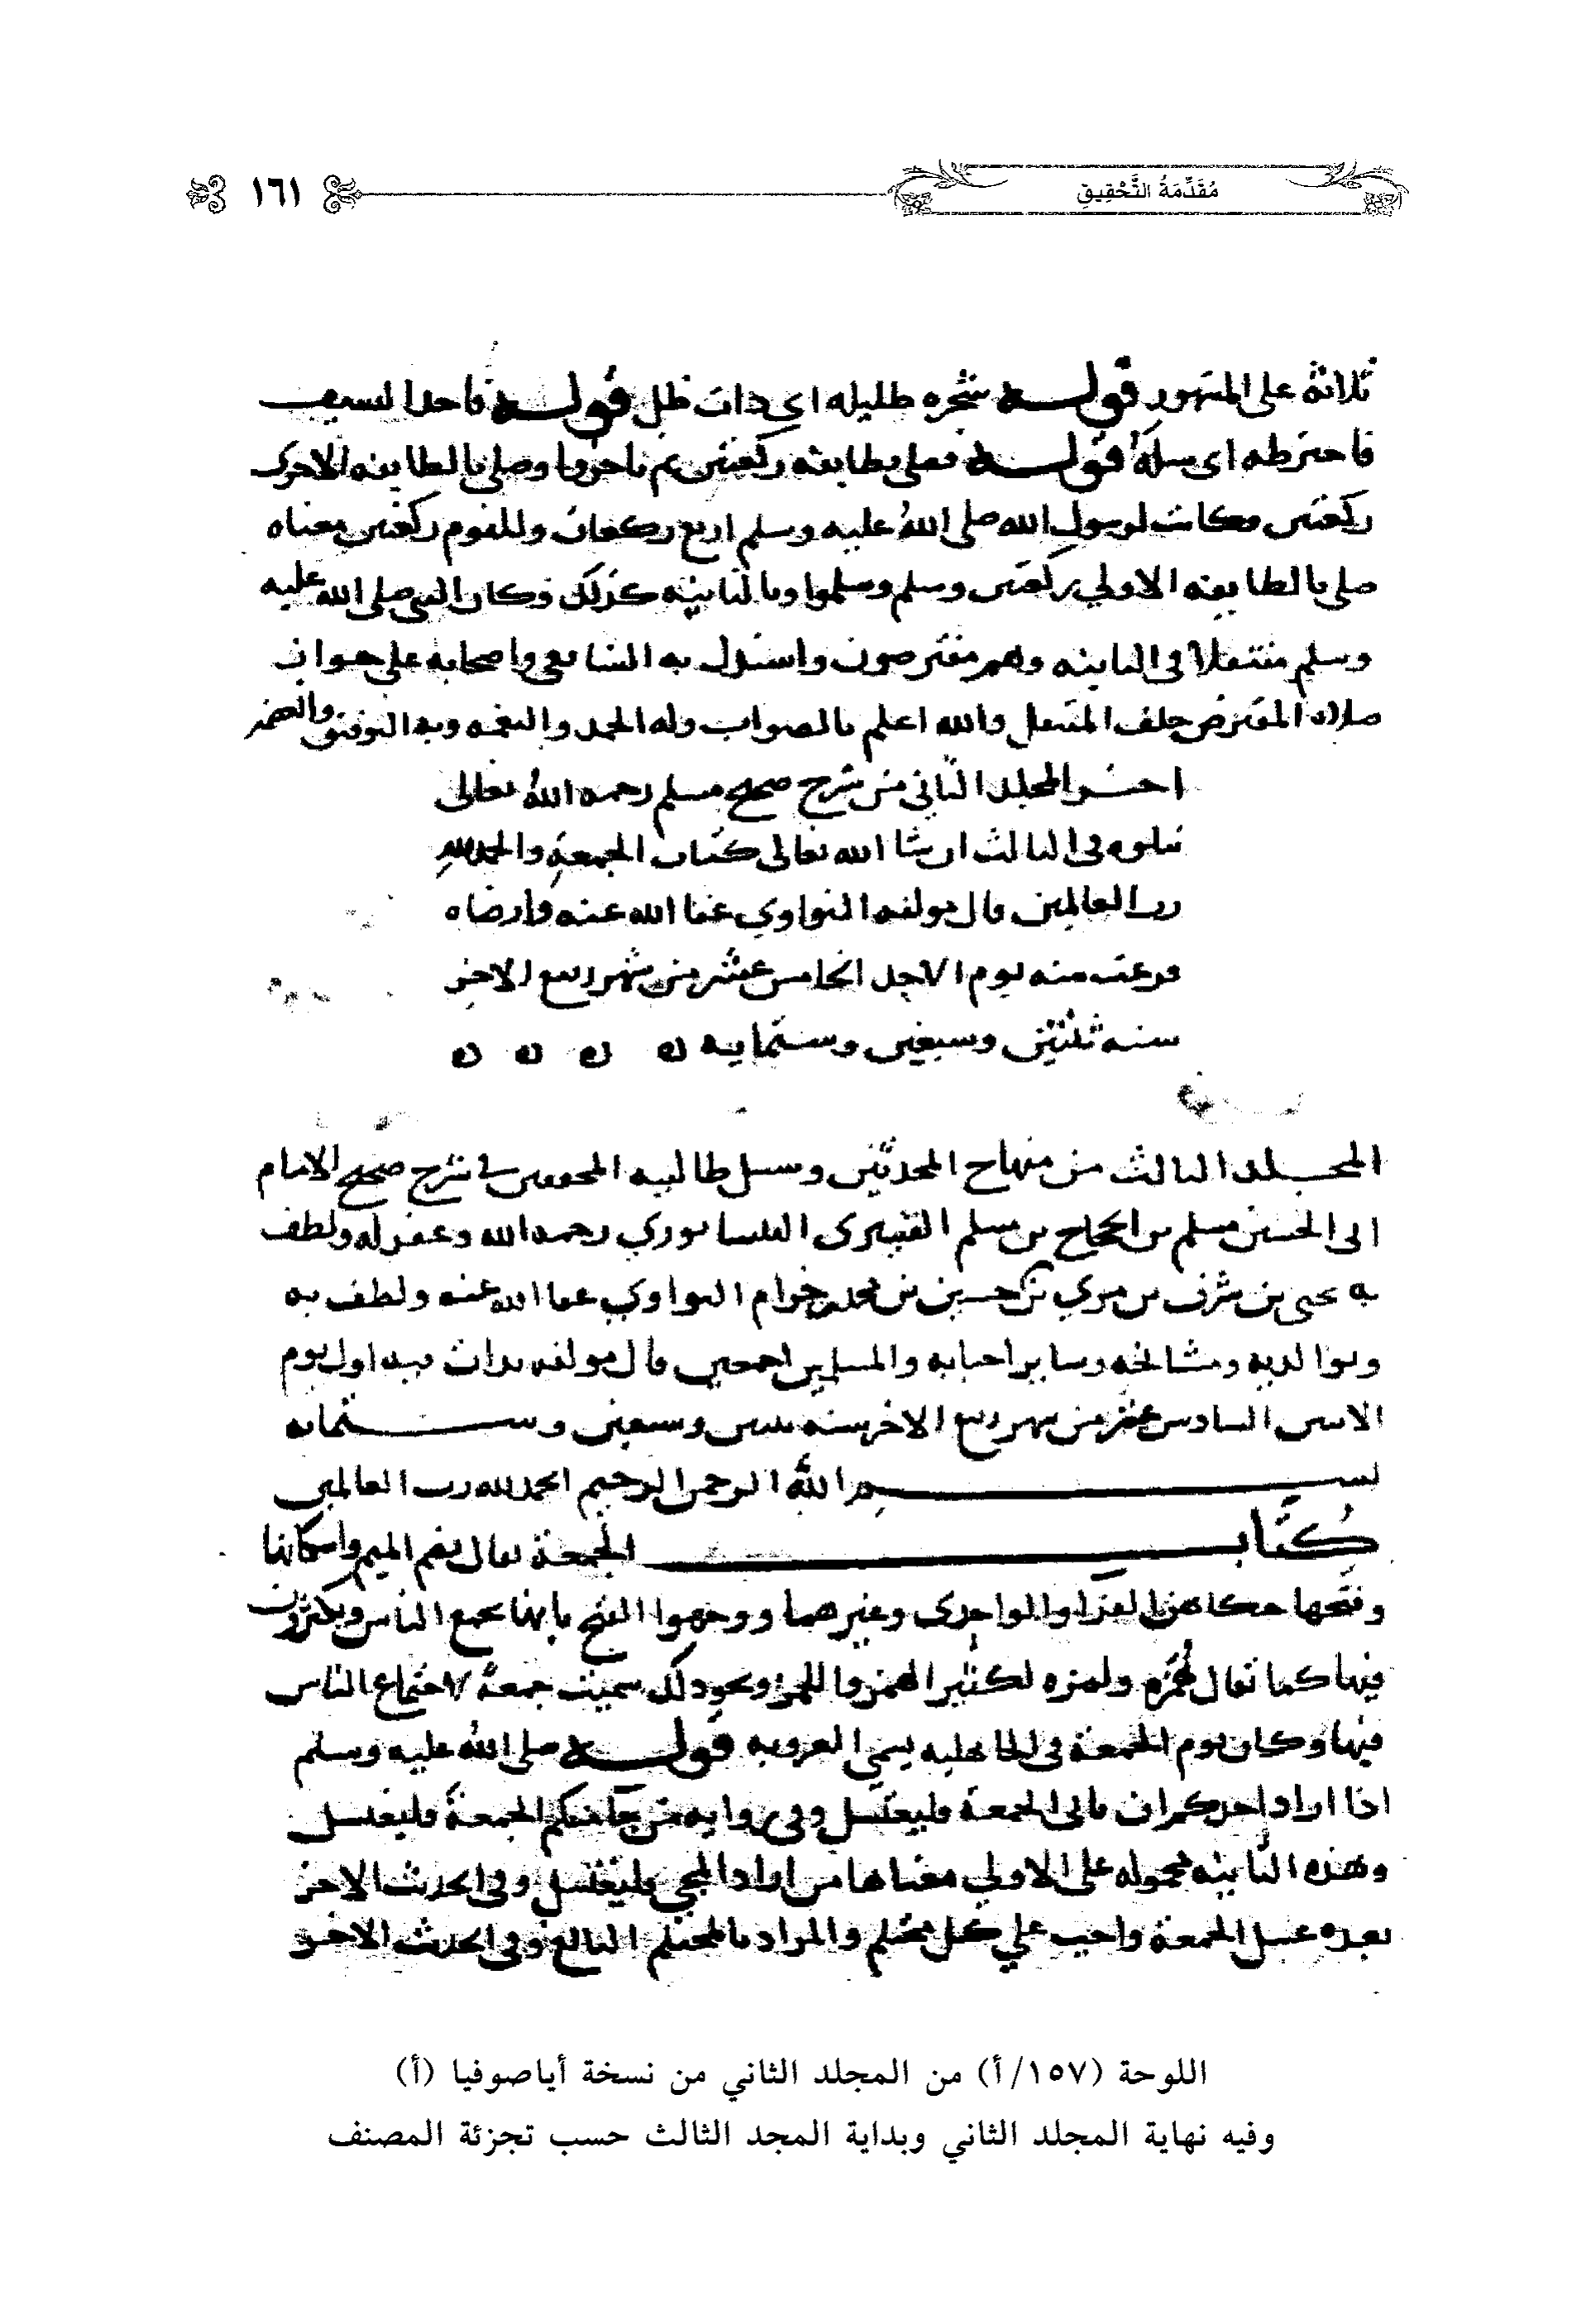 مُقَدِّمَةُ التَّحْقِيقِ ١٦١
ثلاثة على المشهور قوله شجره ظليله اى ذات ظل قوله فاخذ السيف
فاخترطه اى سله قوله فصلى بطايفه ركعتين ثم تاخروا وصلى بالطايفه الاخرى
ركعتين فكانت لرسول الله صلى الله عليه وسلم اربع ركعات وللقوم ركعتين معناه
صلى بالطايفه الاولي ركعتين وسلم وسلموا وبالثانيه كذلك وكان النبي صلى الله عليه
وسلم متنفلا في الثانيه وهم مفترضون واستدل به الشافعي واصحابه على جواز
صلاة المفترض خلف المتنفل والله اعلم بالصواب وله الحمد والنعمه وبه التوفيق والعصمه
اخر المجلد الثاني من شرح صحيح مسلم رحمه الله تعالى
يتلوه في الثالث ان شا الله تعالى كتاب الجمعة والحمد لله
رب العالمين قال مولفه النواوي عفا الله عنه وارضاه
فرغت منه يوم الاحد الخامس عشر من شهر ربيع الاخر
سنه ثنتين وسبعين وستمايه ه ه ه ه
المجلد الثالث من منهاج المحدثين وسبيل طالبيه المحققين في شرح صحيح الامام
ابى الحسين مسلم بن الحجاج بن مسلم القشيرى النيسابوري رحمه الله وغفر له ولطف
به يحيى بن شرف بن مري بن حسين بن محمد بن حزام النواوي عفا الله عنه ولطف به
وبوالديه ومشايخه وساير احبابه والمسلمين اجمعين قال مولفه بدات فيه اول يوم
الاثنين السادس عشر من شهر ربيع الاخر سنه ثنتين وسبعين وستمايه
بسم الله الرحمن الرحيم الحمد لله رب العالمين
كتاب الجمعة يقال بضم الميم واسكانها
وفتحها حكاهن الفرا والواحدى وغيرهما ووجهوا الفتح بانها تجمع الناس ويكثرون
فيها كما يقال همزه ولمزه لكثير الهمز واللمز ونحو ذلك سميت جمعة لاجتماع الناس
فيها وكان يوم الجمعة في الجاهليه يسمي العروبه قوله صلى الله عليه وسلم
اذا اراد احدكم ان ياتى الجمعة فليغتسل وفي روايه من جا منكم الجمعة فليغتسل
وهذه الثانيه محموله على الاولي معناها من اراد المجي فليغتسل وفي الحديث الاخر
بعده غسل الجمعة واجب علي كل محتلم والمراد بالمحتلم البالغ وفي الحديث الاخر
اللوحة (١٥٧/أ) من المجلد الثاني من نسخة أياصوفيا (أ)
وفيه نهاية المجلد الثاني وبداية المجد الثالث حسب تجزئة المصنف